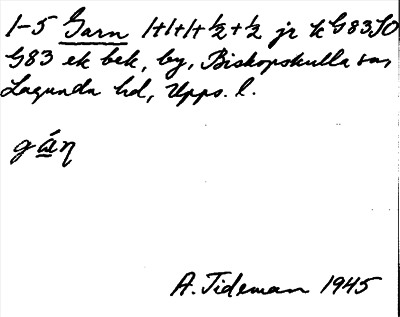 1-5 Garn 1+1+1+½+½ jr k G83SO
G83 ek bek, by, Biskopskulla sn
Lagunda hd, Upps. l.
gáη
A. Tideman 1945